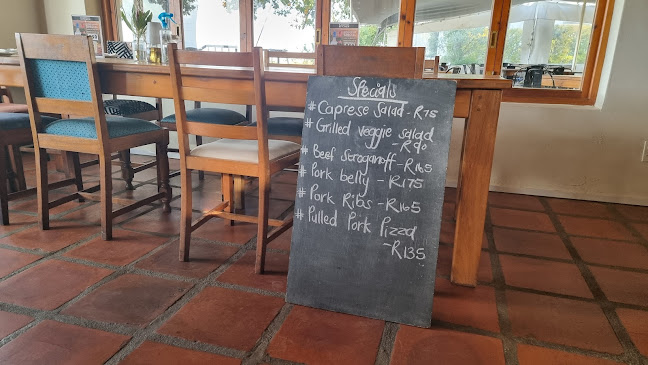 Specials
# Caprese Salad - R75
# Grilled veggie salad
- R90
# Beef Stroganoff - R165
# Pork belly - R175
# Pork Ribs - R165
# Pulled Pork Pizza
- R135